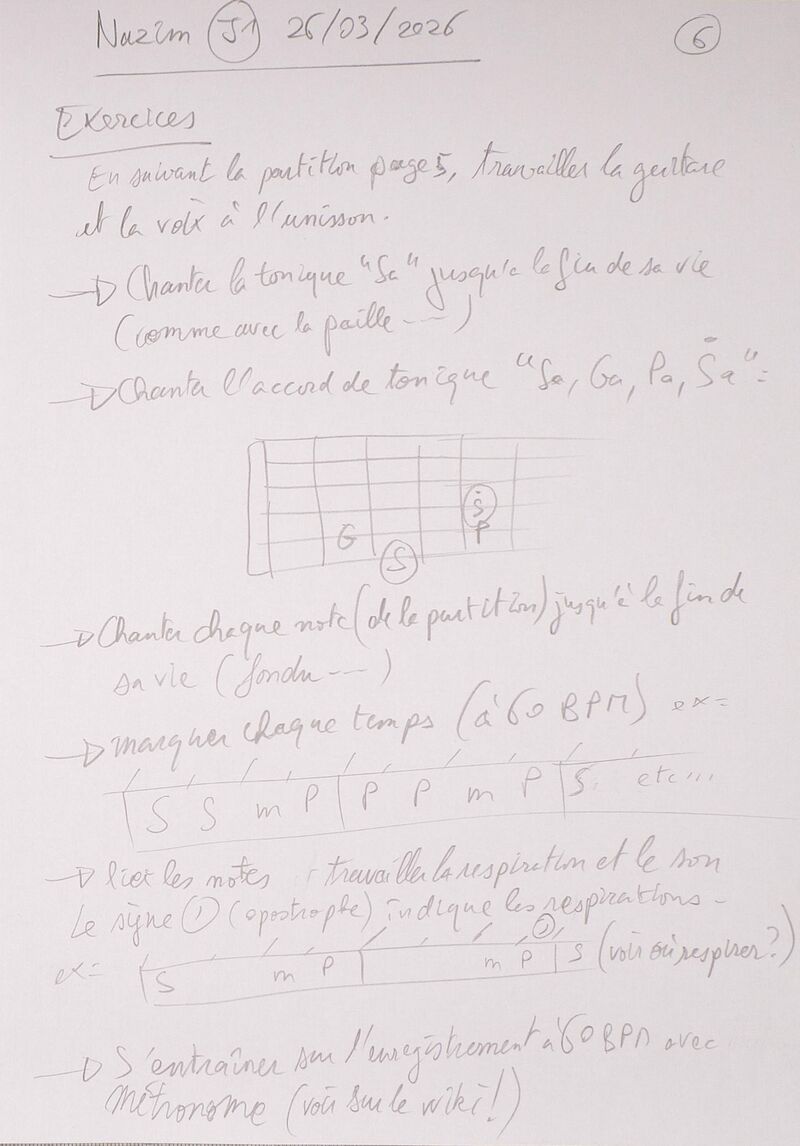 Nazim J1 26/03/2026
6
Exercices
En suivant la partition page 5, travailler la guitare
et la voix à l'unisson.
→ Chanter la tonique "Sa" jusqu'à la fin de sa vie
(comme avec la paille ---)
→ Chanter l'accord de tonique "Sa, Ga, Pa, Ṡa" =
Ṡ
G P
S
→ Chanter chaque note (de la partition) jusqu'à la fin de
sa vie (fondu ---)
→ marquer chaque temps (à 60 BPM) ex =
S S m P | P P m P | S. etc...
→ lier les notes : travailler la respiration et le son
Le signe ʼ (apostrophe) indique les respirations -
ex = S m P | m P ʼ | S (voir où respirer?)
→ S'entraîner sur l'enregistrement à 60 BPM avec
métronome (voir sur le wiki!)